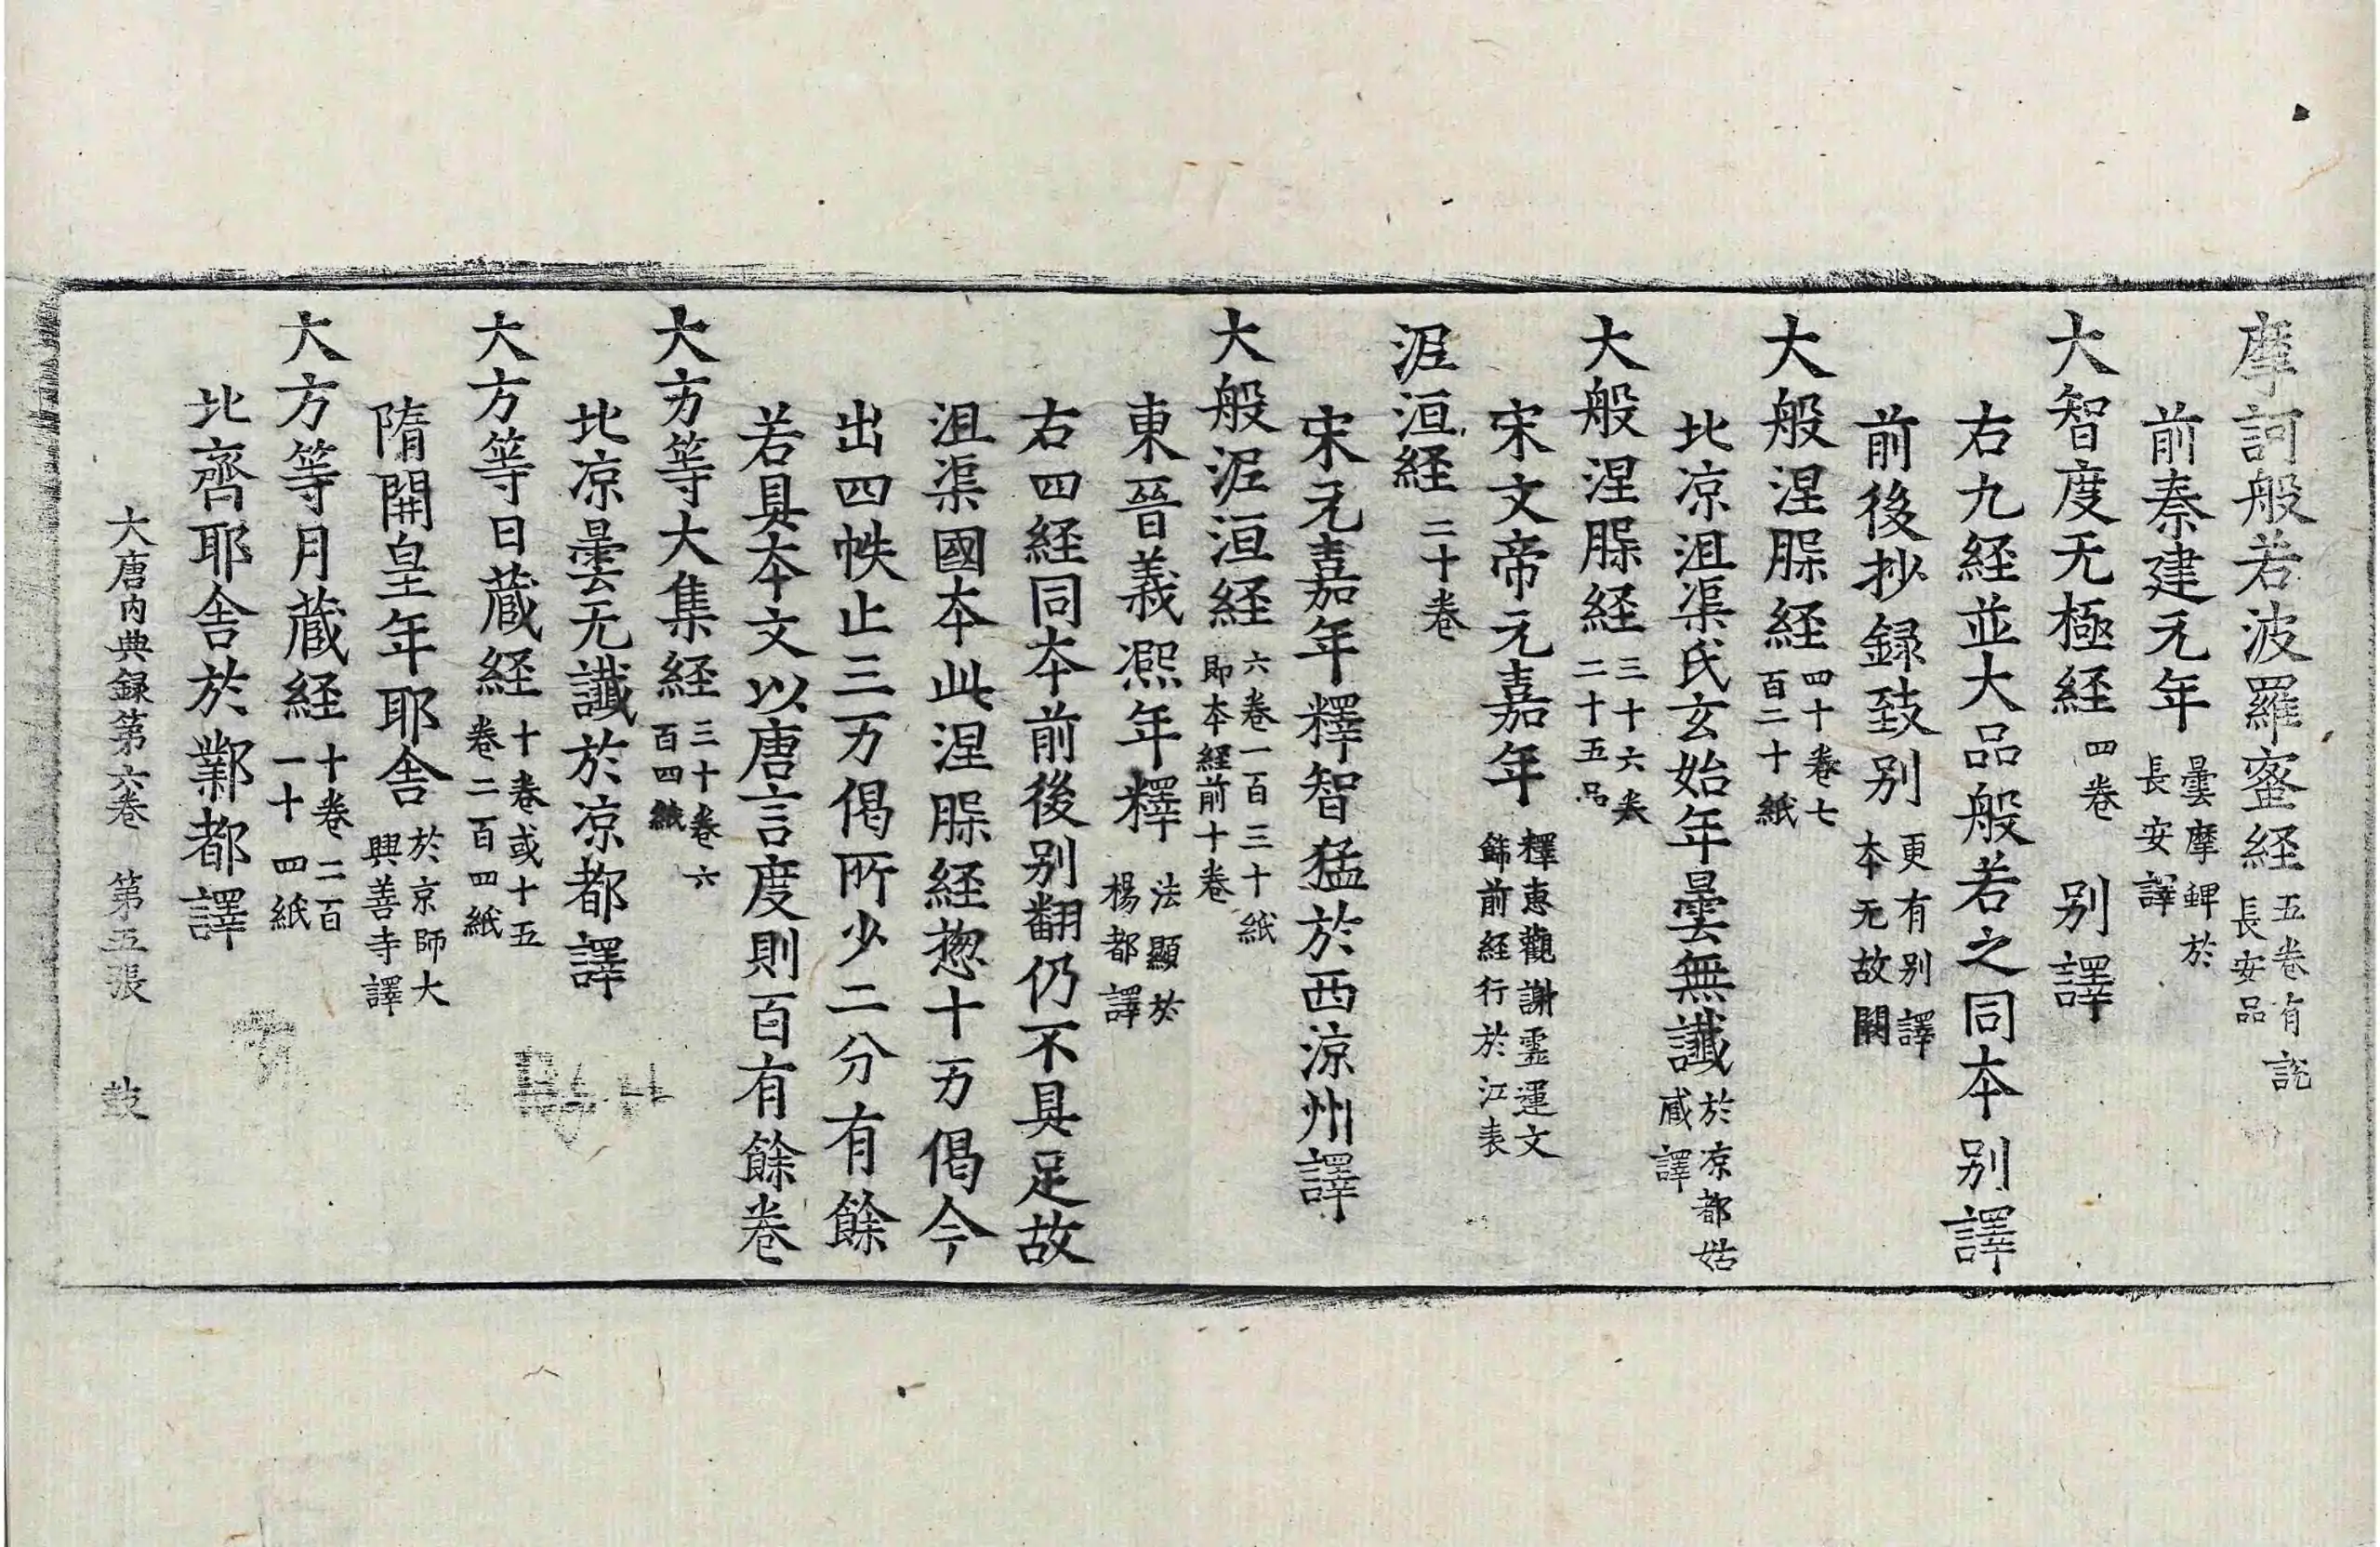 摩訶般若波羅蜜経五卷有說長安品
前秦建元年曇摩鞞於長安譯
大智度无極経四卷 別譯
右九経並大品般若之同夲別譯
前後抄録致別更有別譯夲无故闕
大般涅脲経四十卷七百二十紙
北涼沮渠氏玄始年曇無讖於凉都姑臧譯
大般涅脲経三十六卷二十五品
宋文帝元嘉年釋惠觀謝霊運文飾前経行於江表
泥洹経二十卷
宋元嘉年釋智猛於西涼州譯
大般泥洹経六卷一百三十紙即夲経前十卷
東晉義凞年釋法顯於楊都譯
右四経同夲前後別翻仍不具足故
沮渠國夲此涅脲経惣十万偈今
出四帙止三万偈所少二分有餘
若具夲文以唐言度則百有餘卷
大方等大集経三十卷六百四紙
北凉曇无讖於凉都譯
大方等日蔵経十卷或十五卷二百四紙
隋開皇年耶舎於京師大興善寺譯
大方等月蔵経十卷二百一十四紙
北齊耶舎於鄴都譯
大唐内典録第六卷 第五張 鼓